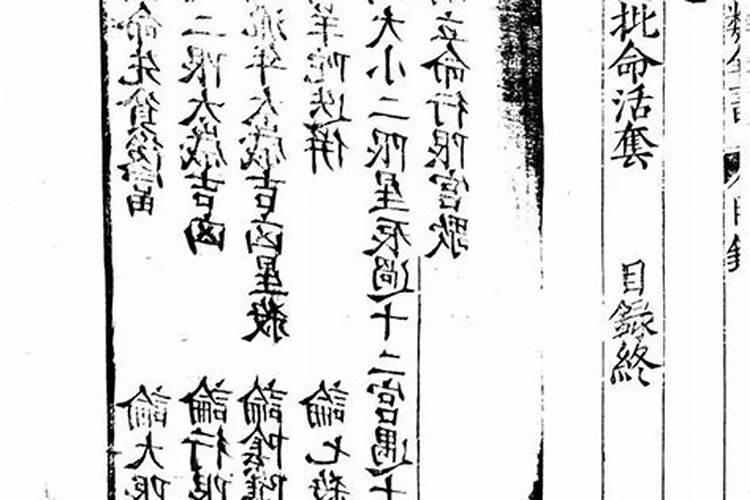 數全書 目錄
批命活套 目錄終
立命行限宮歌
大小二限星辰過十二宮遇十
羊陀迭併 論七殺
流年太歲吉凶星殺 論陰陽
二限太歲吉凶 論行限
命先貧後富 論大限